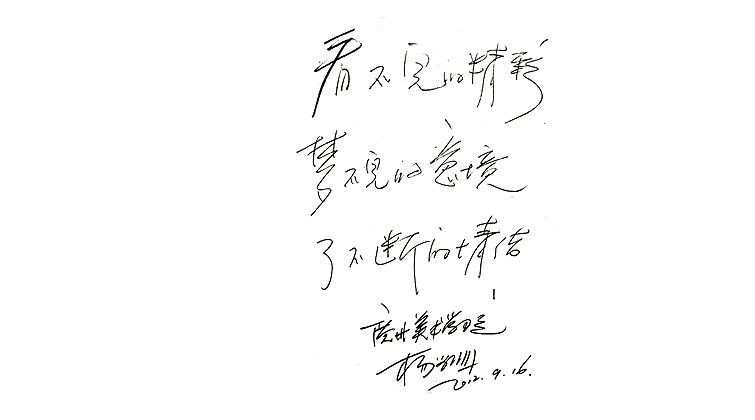 看不见的精彩
梦不见的意境
了不断的情结
广州美术学院
杨
2012.9.16.